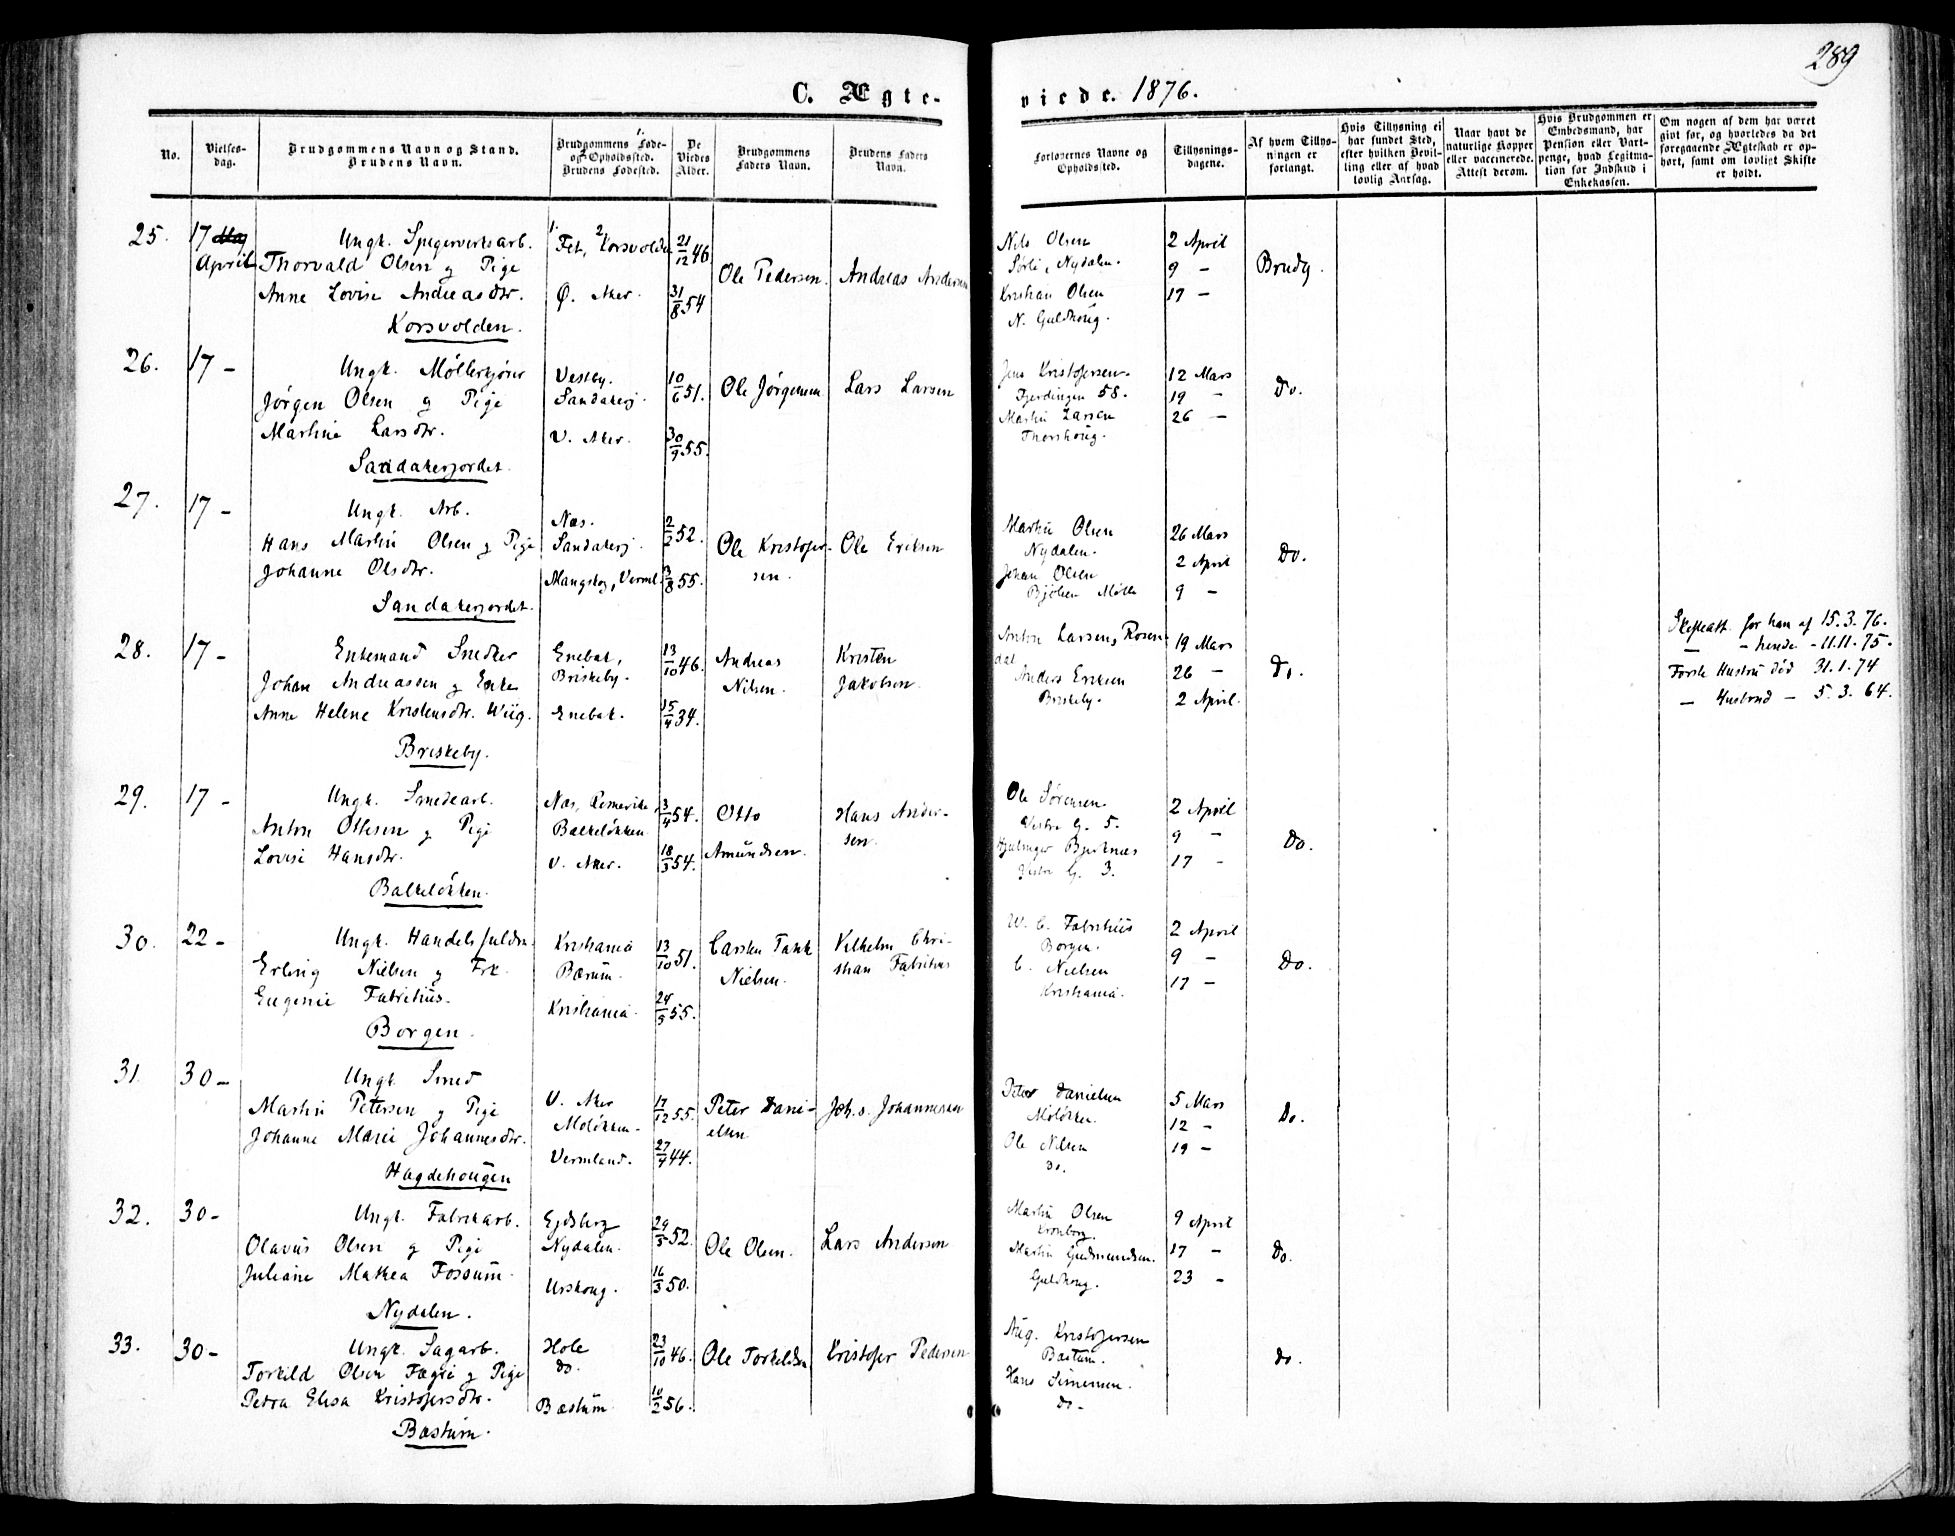 289
C. Ægteviede. 1876.
No.
Vielsesdag.
Brudgommens Navn og Stand.
Brudens Navn.
Brudgommens Føde- og Opholdssted.
Brudens Fødested.
De Viedes Alder.
Brudgommens Faders Navn.
Brudens Faders Navn.
Forlovernes Navne og Opholdssted.
Tillysningsdagene.
Af hvem Tillysningen er forlangt.
Hvis Tillysning ei har fundet Sted, efter hvilken Bevilling eller af hvad lovlig Aarsag.
Naar havt de naturlige Kopper eller vaccinerede. Attest derom.
Hvis Brudgommen er Embedsmand, har Pension eller Vartpenge, hvad Legitimation for Indskud i Enkekassen.
Om nogen af dem har været givt før, og hvorledes da det foregaaende Ægteskab er ophørt, samt om lovligt Skifte er holdt.
25. 17 April
Ungk. Spigerverksarb.
Thorvald Olsen og Pige
Anne Lovise Andreasdtr.
Korsvolden.
1. Fet, 2 Korsvolden
Ø. Aker.
21/12 46.
31/8 54
Ole Pedersen.
Andreas Andersen
Nils Olsen
Sørli, Nydalen.
Kristian Olsen
N. Guldhoug.
2 April
9 -
17 -
Brudg.
26. 17 -
Ungk. Møllerkjører
Jørgen Olsen og Pige
Martine Larsdtr.
Sandakerjordet.
Vestby.
Sandakerj.
V. Aker.
10/6 51.
30/9 55.
Ole Jørgensen
Lars Larsen
Jens Kristofersen.
Fjerdingen 58.
Martin Larsen
Thorshoug.
12 Mars
19 -
26 -
Do.
27. 17 -
Ungk. Arb.
Hans Martin Olsen og Pige
Johanne Olsdtr.
Sandakerjordet.
Næs.
Sandakerj.
Mangskog, Verml.
2/2 52.
3/8 55.
Ole Kristofersen.
Ole Eriksen
Martin Olsen
Nydalen.
Johan Olsen
Bjølsen Mølle
26 Mars
2 April
9 -
Do.
28. 17 -
Enkemand Snedker
Johan Andreassen og Enke
Anne Helene Kristensdtr. Wiig.
Briskeby.
Enebak,
Briskeby.
Enebak.
13/10 46.
15/4 34.
Andreas
Nilsen.
Kristen
Jakobsen.
Anton Larsen, Rosendal
Anders Eriksen
Briskeby.
19 Mars
26 -
2 April.
Do.
Skifteatt. for han af 15.3.76.
- - hende - 11.11.75.
Første Hustru død 31.1.74
- Husbond - 5.3.64.
29. 17 -
Ungk. Smedearb.
Anton Ottesen og Pige
Lovise Hansdtr.
Balkeløkken.
Næs, Romerike,
Balkeløkken.
V. Aker.
3/4 54.
18/3 54.
Otto
Amundsen.
Hans Andersen.
Ole Sørensen.
Vestre G. 5.
Bjerknæs
Vestre G. 3.
2 April
9 -
17 -
Do.
30. 22 -
Ungk. Handelsfuldm.
Erling Nielsen og Frk.
Eugenie Fabritius.
Borgen.
Kristiania
Bærum.
Kristiania.
13/10 51.
24/5 55.
Carsten Tank
Nielsen.
Vilhelm Christian Fabritius
W. C. Fabritius
Borgen.
C. Nielsen
Kristiania.
2 April
9 -
17 -
Do.
31. 30 -
Ungk. Smed
Martin Petersen og Pige
Johanne Marie Johannesdtr.
Hagdehougen
V. Aker
Moløkken.
Vermland.
17/12 55.
27/9 44.
Peter Danielsen
Joh.s. Johannessen
Peter Danielsen
Moløkken.
Ole Nilsen
do.
5 Mars
12 -
19 -
Do.
32. 30 -
Ungk. Fabrikarb.
Olavus Olsen og Pige
Juliane Mathea Fossum.
Nydalen.
Eidsberg
Nydalen.
Urskoug.
29/5 52.
16/3 50.
Ole Olsen.
Lars Andersen
Martin Olsen
Kronborg.
Martin Gudmundsen.
Guldhoug.
9 April
17 -
23 -
Do.
33. 30 -
Ungk. Sagarb.
Torkild Olsen Fægri og Pige
Petra Elisa Kristofersdtr.
Bastum.
Hole
do.
Bastum
23/10 46.
10/2 56.
Ole Torkildsen
Kristofer Pedersen
Aug. Kristofersen
Bastum.
Hans Simensen.
do.
Do.